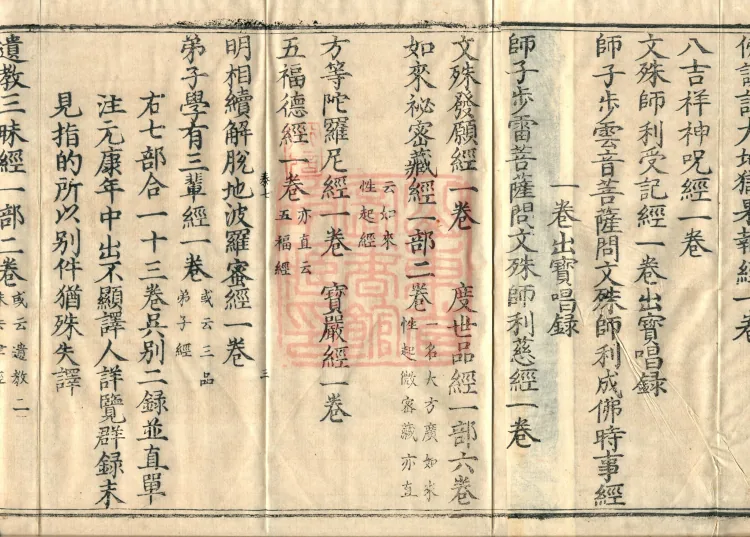 果報經一卷
八吉祥神呪經一卷
文殊師利受記經一卷出寶唱録
師子步雲音菩薩問文殊師利成佛時事經
一卷出寶唱録
師子步雷菩薩問文殊師利慈經一卷
文殊發願經一卷 度世品經一部六卷
如來祕密藏經一部二卷 一名大方廣如来
性起微密藏亦直
云如來
性起經
方等陀羅尼經一卷 寶嚴經一卷
五福德經一卷 亦直云
五福經
卷七 三
明相續解脫地波羅蜜經一卷
弟子學有三輩經一卷 或云三品
弟子經
右七部合一十三卷兵別二録並直單
注元康年中出不顯譯人詳覽群録未
見指的所以別件猶殊失譯
遺教三昧經一部二卷 或云遺教二